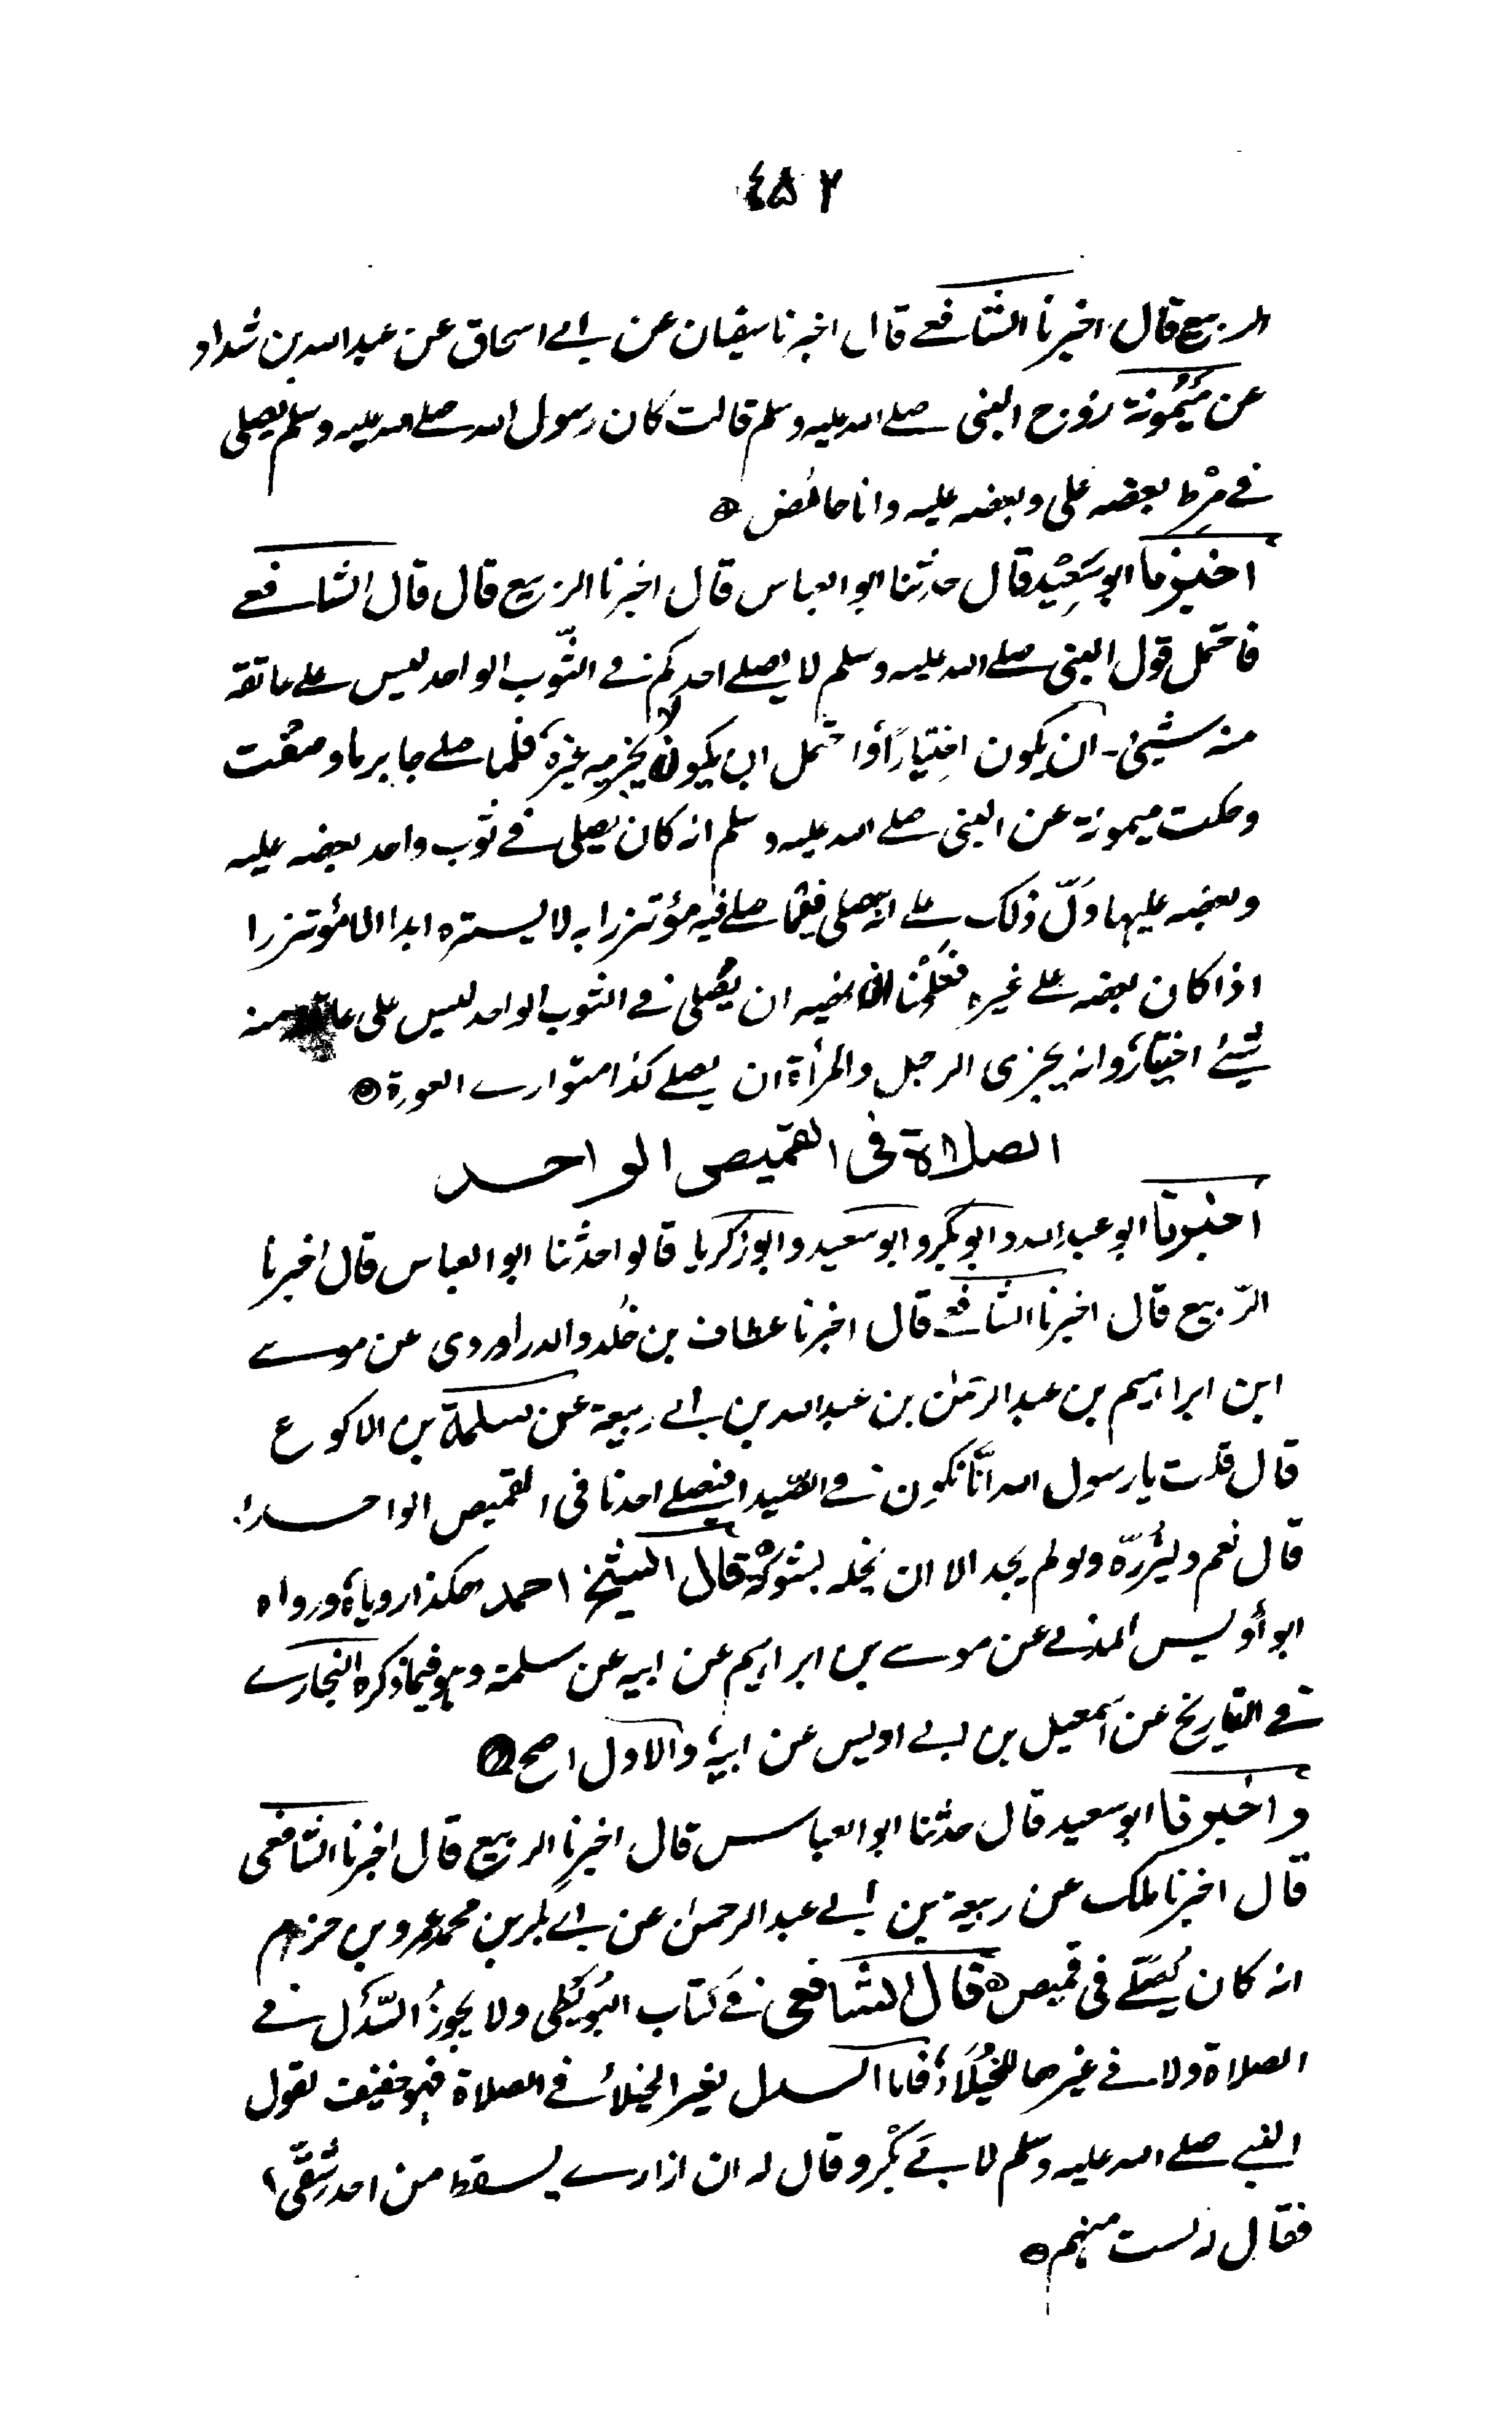 ٤٥٢
الربيع قال اخبرنا الشافعي قال اخبرنا سفيان عن ابي اسحاق عن عبدالله بن شداد
عن ميمونة زوج النبي صلے الله عليه وسلم قالت كان رسول الله صلے الله عليه وسلم يصلى
في مرط بعضه على وبعضه عليه وانا حائض
اخبرنا ابو سعيد قال حدثنا ابو العباس قال اخبرنا الربيع قال قال الشافعے
فاحتمل قول النبى صلے الله عليه وسلم لا يصلے احدكم في الثوب الواحد ليس علے عاتقه
منه شيئ۔ ان يكون اختيارًا واحتمل ان يكون لا يجزيه غيره فلما صلے جابر ما وصفت
وحكت ميمونة عن النبى صلے الله عليه وسلم انه كان يصلى في ثوب واحد بعضه عليه
وبعضه عليها دلّ ذلك علے انه صلى فيما صلے فيه مؤتزرا به لا يستره ابدا الا مؤتزرا
اذا كان بعضه علے غيره فعلمنا ان نهيه ان يصلى في الثوب الواحد ليس على عاتقه منه
شيئ اختيار وانه يجزى الرجل والمرأة ان يصلے كذا متوارے العورة
الصلاة فى القميص الواحد
اخبرنا ابو عبدالله وابو بكر وابو سعيد وابو زكريا قالوا حدثنا ابو العباس قال اخبرنا
الربيع قال اخبرنا الشافعے قال اخبرنا عطاف بن خلد والدراوردى عن موسے
ابن ابراهيم بن عبدالرحمن بن عبدالله بن ابي ربيعة عن سلمة بن الاكوع
قال قلت يا رسول الله انّا نكون في الصّيد افيصلے احدنا فى القميص الواحد
قال نعم وليزرّه ولو لم يجد الا ان يخله بشوكة قال الشيخ احمد هكذا روياه ورواه
ابو أويس المدني عن موسے بن ابراهيم عن ابيه عن سلمة وهو فيما ذكره البخارے
في التاريخ عن اسمعيل بن ابي اويس عن ابيه والاول اصح
واخبرنا ابو سعيد قال حدثنا ابو العباس قال اخبرنا الربيع قال اخبرنا الشافعى
قال اخبرنا ملك عن ربيعة بن ابي عبد الرحمن عن ابي بكر بن محمد عمرو بن حزم
انه كان يصلّے فى قميص قال الشافعى في كتاب البويطى ولا يجوز السّدل في
الصلاة ولا في غيرها للخيلاء فاما السدل لغير الخيلاء في الصلاة فهو خفيف لقول
النبي صلے الله عليه وسلم لابي بكر وقال له ان ازارے يسقط من احد شقّي
فقال له لست منهم